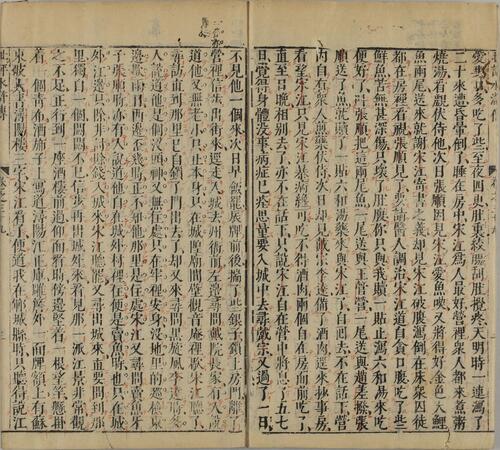 愛爽口多吃了些至夜四更肚裏絞腸刮肚攪疼天明時一連瀉了
二十來遭昏暈倒了睡在房中宋江爲人最好營裡衆人都來煮粥
燒湯看覷伏侍他次日張順因見宋江愛魚吃又將得好金色大鯉
魚兩尾送來就謝宋江寄書之義却見宋江破腹瀉倒在床衆囚徒
都在房裡看視張順見了要請醫人調治宋江道自貪口腹吃了些
鮮魚苦無甚深傷只壞了肚腹你只與我贖一貼止瀉六和湯來吃
便好了呌張順把這兩尾魚一尾送與王管營一尾送與趙差撥張
順送了魚就贖了一貼六和湯藥來與宋江了自回去不在話下營
內自有衆人煎藥伏侍次日却見戴宗李逵備了酒肉逕來抄事房
看望宋江只見宋江暴病纔可吃不得酒肉兩個自在房面前吃了
直至日晚相別去了亦不在話下只說宋江自在營中將息了五七
日覺得身體沒事病症已痊思量要入城中去尋戴宗又過了一日
不見他一個來次日早飯罷辰牌前後揣了些銀子鎖上房門離了
營裡信步出街來逕走入城去州衙前左邊尋問戴院長家有人説
道他又無老小只止本身只在城隍廟間壁觀音庵裡歇宋江聽了
尋訪直到那里已自鎖了門出去了却又來尋問黑旋風李逵時多
人説道他是個沒頭神又無住處只在牢裡安身沒地里的巡檢東
邊歇兩日西邊歪幾時正不知他那里是住處宋江又尋問賣魚牙
子張順時亦有人説道他自在城外村裡住便是賣魚時也只在城
外江邊只除非討賖錢入城來宋江聽罷又尋出城來直要問到那
里獨自一個悶悶不已信步再出城外來看見那一派江景非常觀
之不足正行到一座酒樓前過仰面看時傍邊竪着一根望竿懸掛
着一個青布酒斾子上寫道潯陽江正庫雕簷外一面牌額上有蘇
東坡大書潯陽樓三字宋江看了便道我在鄆城縣時只聽得説江